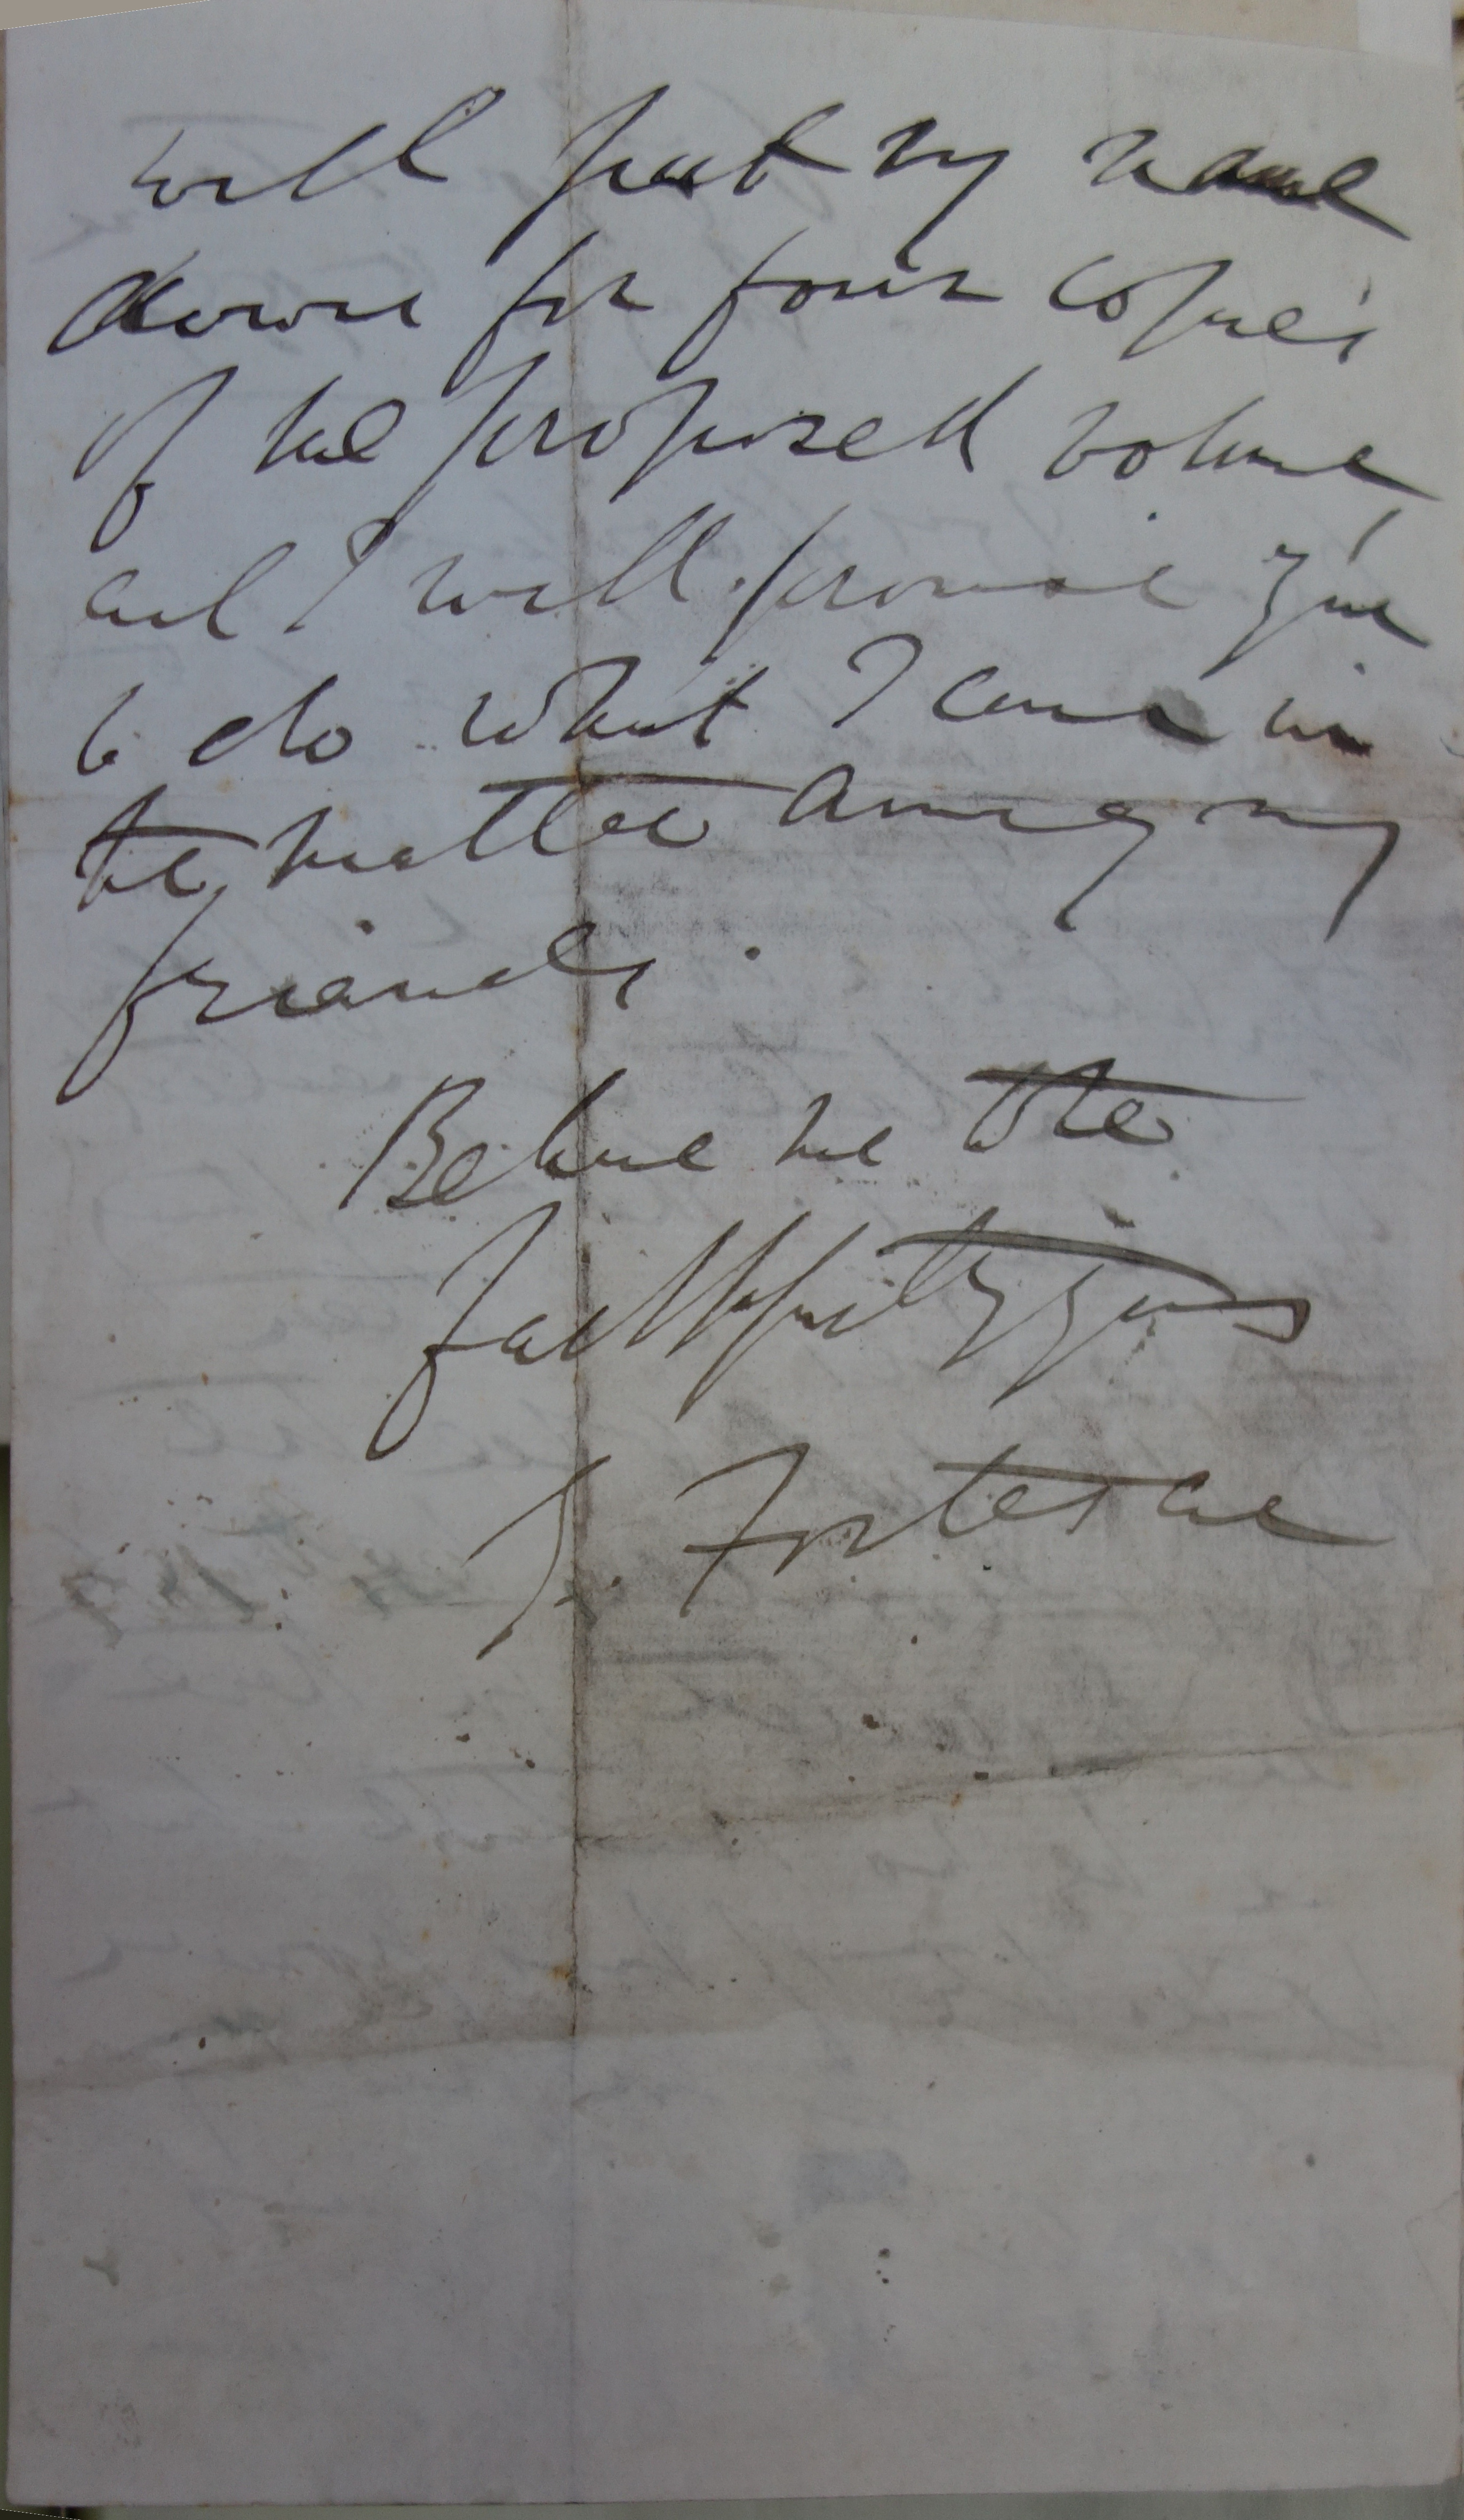 will put my name
down for four copies
of the proposed volume
and I will promise you
to do what I can in
the matter among my
friends.
Believe me to be
faithfully yours
J. Fortescue